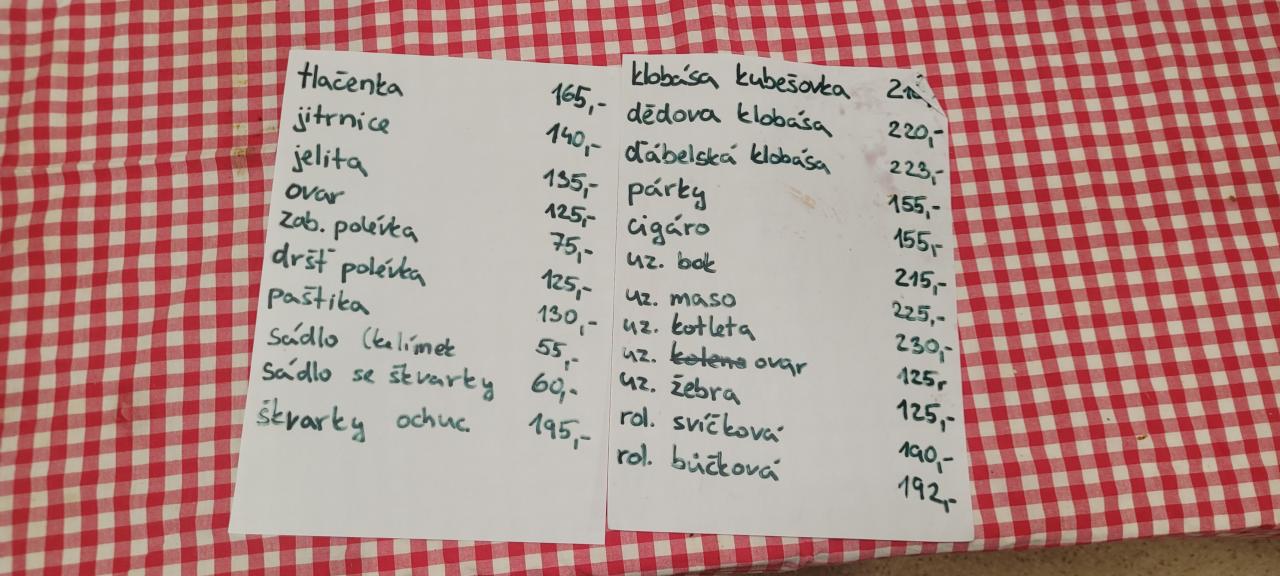 tlačenka 165,-
jitrnice 140,-
jelita 135,-
ovar 125,-
zab. polévka 75,-
dršť polévka 125,-
paštika 130,-
sádlo (kelímek 55,-
sádlo se škvarky 60,-
škvarky ochuc. 195,-
klobása kubešovka
dědova klobása 220,-
ďábelská klobása 223,-
párky 155,-
cigáro 155,-
uz. bok 215,-
uz. maso 225,-
uz. kotleta 230,-
uz. koleno ovar 125,-
uz. žebra 125,-
rol. svíčková 190,-
rol. bůčková 192,-